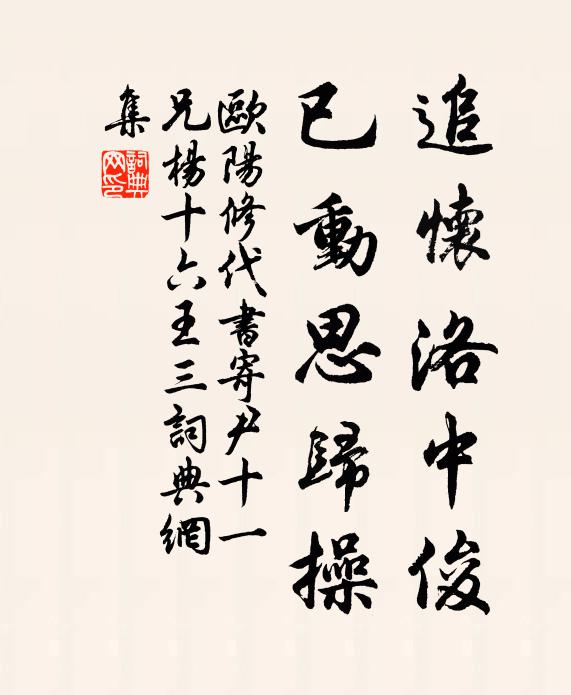 追懷洛中俊
已動思歸操
歐陽修代書寄尹十一
兄楊十六王三詞典網
集
詞典网印